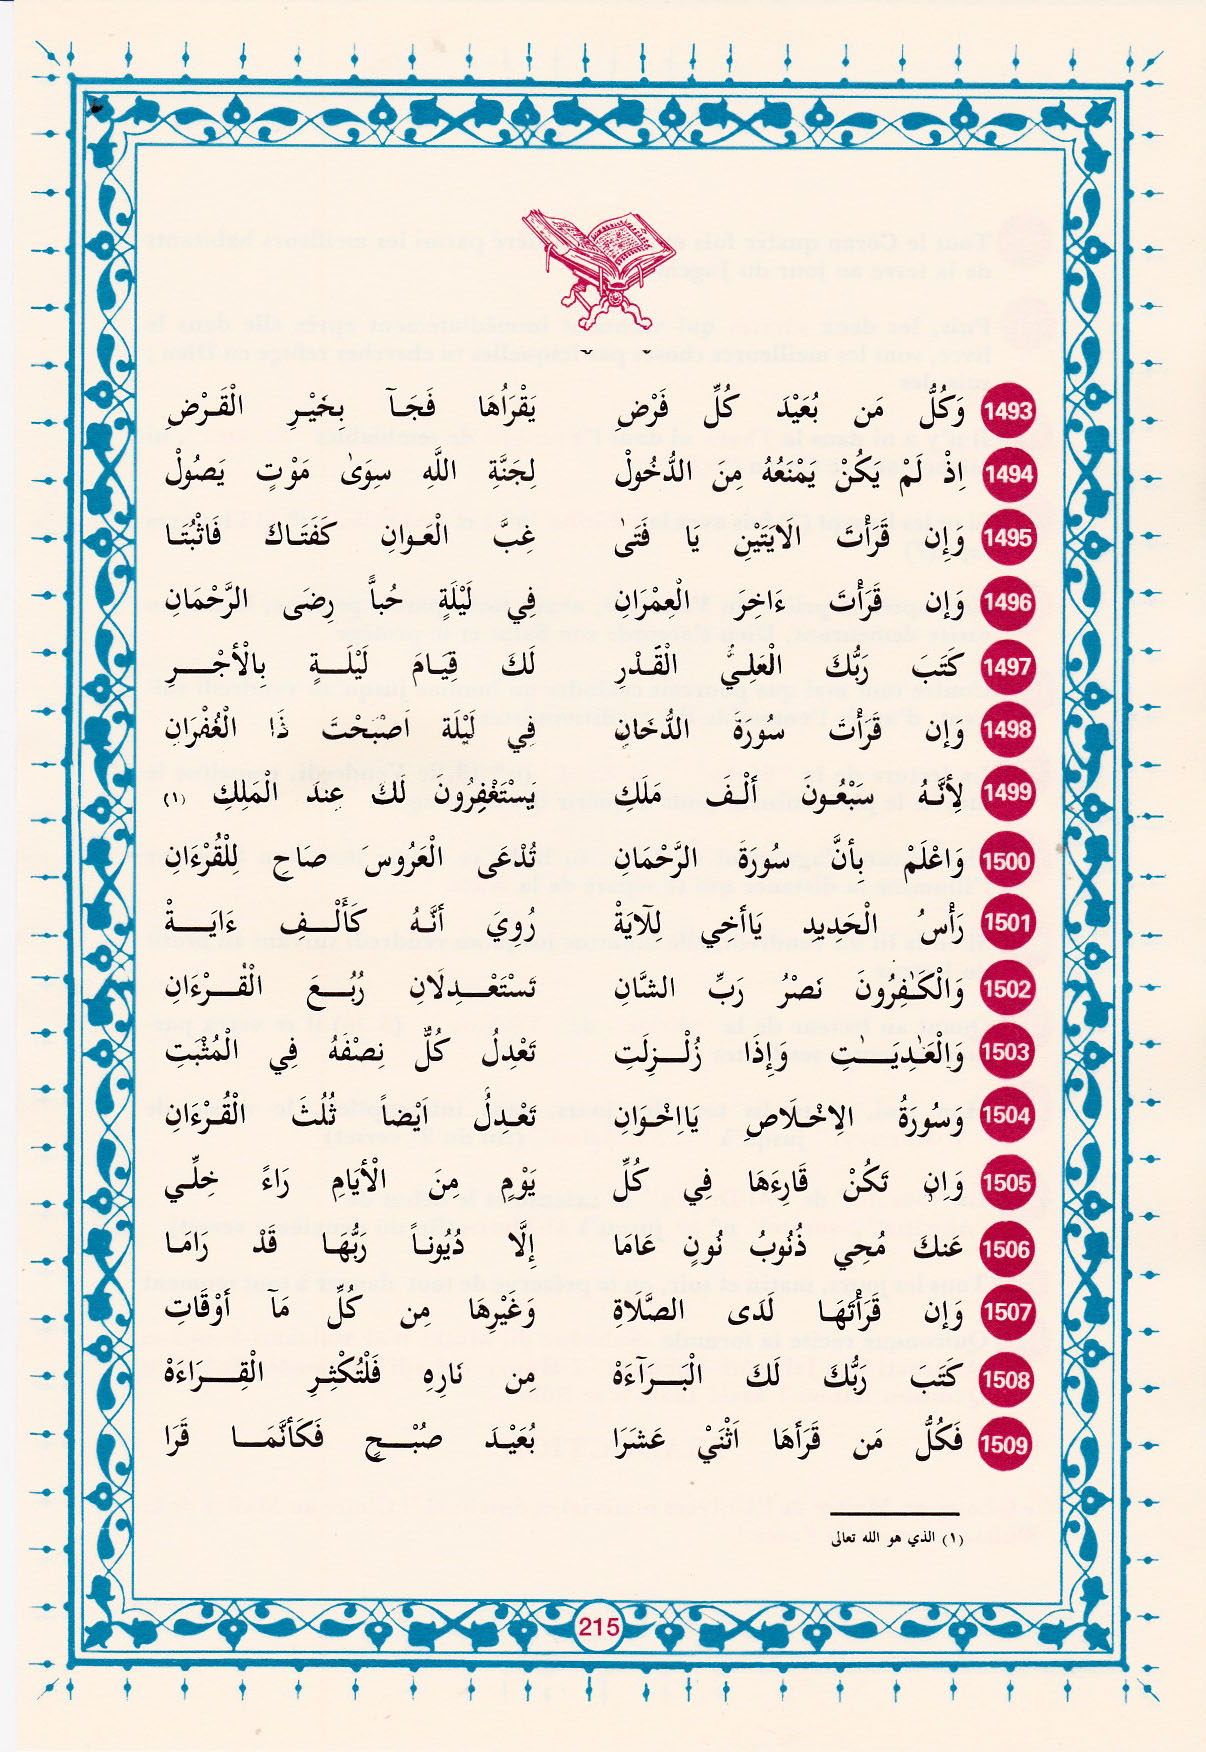 1493 وَكُلُّ مَن بُعَيْدَ كُلِّ فَرْضِ يَقْرَأُهَا فَجَآ بِخَيْرِ الْقَرْضِ
1494 اِذْ لَمْ يَكُنْ يَمْنَعُهُ مِنَ الدُّخُولْ لِجَنَّةِ اللَّهِ سِوَىٰ مَوْتٍ يَصُولْ
1495 وَإِن قَرَأْتَ الَايَتَيْنِ يَا فَتَىٰ غِبَّ الْعَوانِ كَفَتَاكَ فَاثْبُتَا
1496 وَإِن قَرَأْتَ ءَاخِرَ الْعِمْرَانِ فِي لَيْلَةٍ حُباًّ رِضَى الرَّحْمَانِ
1497 كَتَبَ رَبُّكَ الْعَلِيُّ الْقَدْرِ لَكَ قِيَامَ لَيْلَةٍ بِالْأَجْرِ
1498 وَإِن قَرَأْتَ سُورَةَ الدُّخَانِ فِي لَيْلَةٍ اَصْبَحْتَ ذَا الْغُفْرَانِ
1499 لِأَنَّهُ سَبْعُونَ أَلْفَ مَلَكِ يَسْتَغْفِرُونَ لَكَ عِندَ الْمَلِكِ (١)
1500 وَاعْلَمْ بِأَنَّ سُورَةَ الرَّحْمَانِ تُدْعَى الْعَرُوسَ صَاحِ لِلْقُرْءَانِ
1501 رَأْسُ الْحَدِيدِ يَاأَخِي لِلآيَةْ رُوِيَ أَنَّهُ كَأَلْفِ ءَايَةْ
1502 وَالْكَٰفِرُونَ نَصْرُ رَبِّ الشَّانِ تَسْتَعْدِلَانِ رُبُعَ الْقُرْءَانِ
1503 وَالْعَٰدِيَٰتِ وَإِذَا زُلْزِلَتِ تَعْدِلُ كُلٌّ نِصْفَهُ فِي الْمُثْبَتِ
1504 وَسُورَةُ الِاخْلَاصِ يَااِخْوَانِ تَعْدِلُ اَيْضاً ثُلُثَ الْقُرْءَانِ
1505 وَإِن تَكُنْ قَارِءَهَا فِي كُلِّ يَوْمٍ مِنَ الْأَيَامِ رَاءً خِلِّي
1506 عَنكَ مُحِي ذُنُوبُ نُونٍ عَامَا إِلَّا دُيُوناً رَبُّهَا قَدْ رَامَا
1507 وَإِن قَرَأْتَهَا لَدَى الصَّلَاةِ وَغَيْرِهَا مِن كُلِّ مَآ أَوْقَاتِ
1508 كَتَبَ رَبُّكَ لَكَ الْبَرَآءَهْ مِن نَارِهِ فَلْتُكْثِرِ الْقِرَاءَهْ
1509 فَكُلُّ مَن قَرَأَهَا اَثْنَيْ عَشَرَا بُعَيْدَ صُبْحٍ فَكَأَنَّمَا قَرَا
(١) الذي هو الله تعالى
215